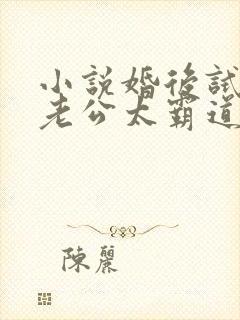 小說婚後試
老公太霸道
陳麗